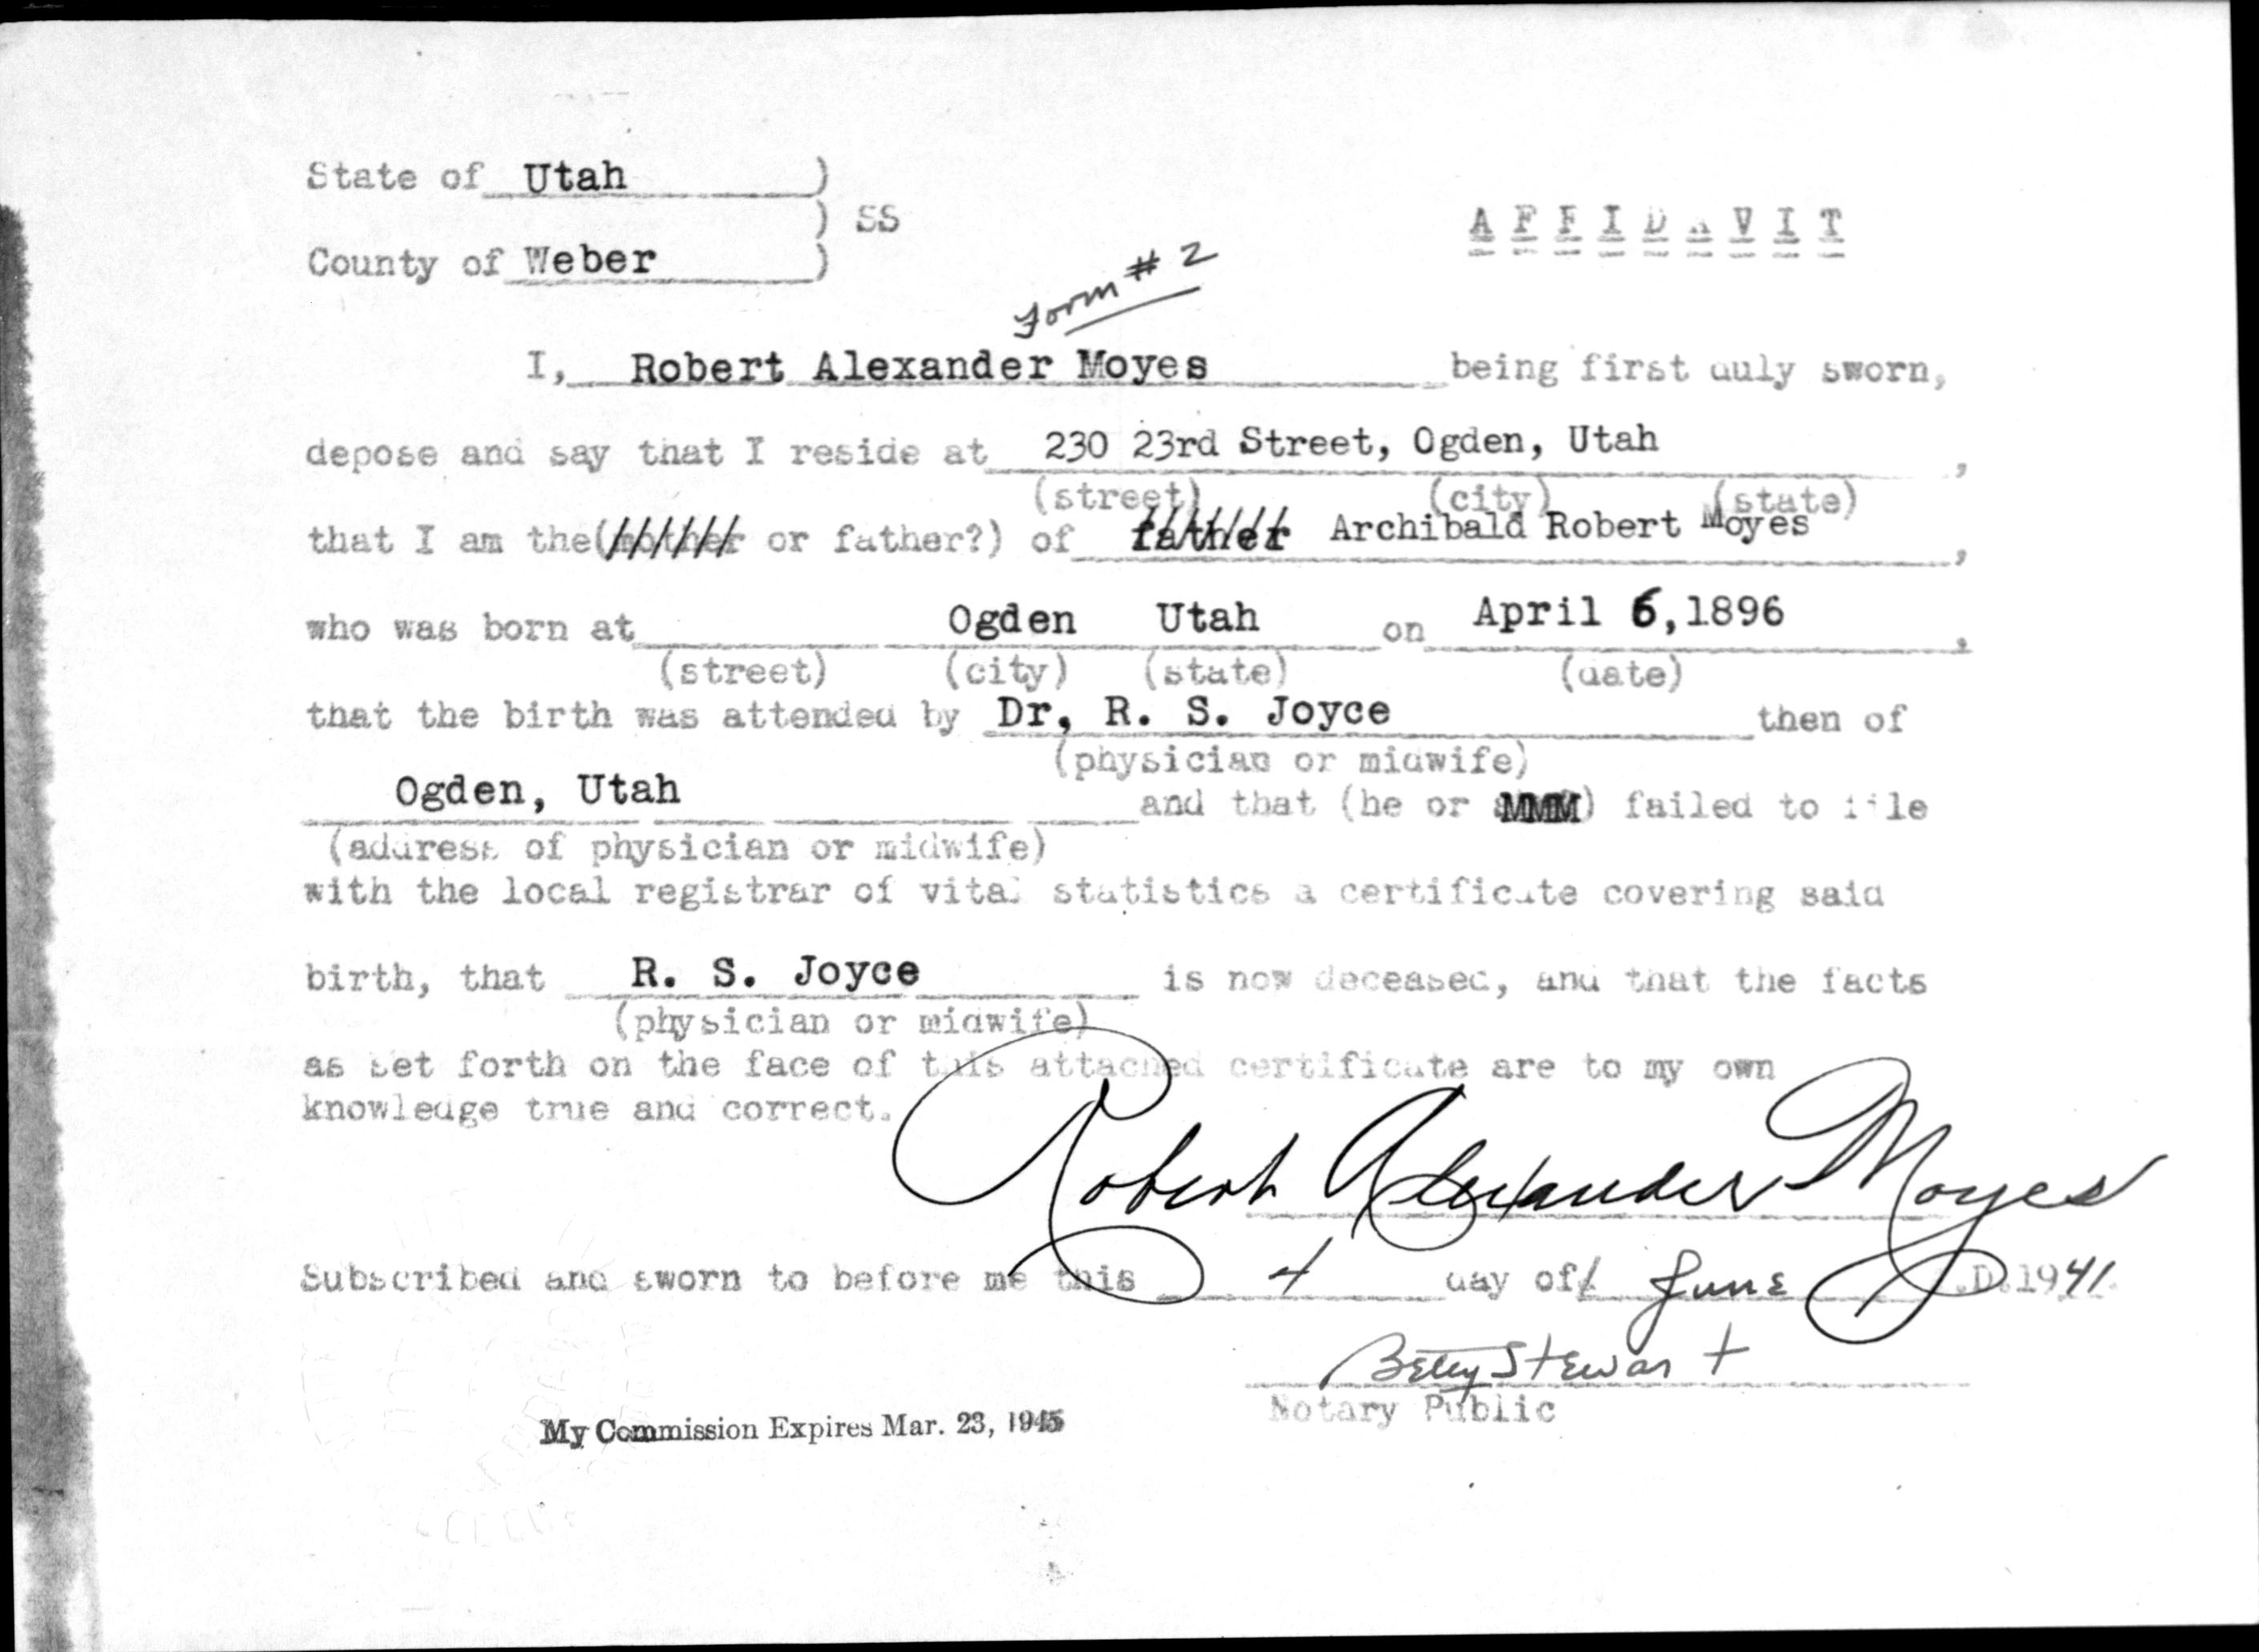 State of Utah )
) SS
AFFIDAVIT
County of Weber )
Form # 2
I, Robert Alexander Moyes being first duly sworn,
depose and say that I reside at 230 23rd Street, Ogden, Utah ,
(street) (city) (state)
that I am the (mother or father?) of father Archibald Robert Moyes ,
who was born at Ogden Utah on April 6, 1896 ,
(street) (city) (state) (date)
that the birth was attended by Dr, R. S. Joyce then of
(physician or midwife)
Ogden, Utah and that (he or MMM) failed to file
(address of physician or midwife)
with the local registrar of vital statistics a certificate covering said
birth, that R. S. Joyce is now deceased, and that the facts
(physician or midwife)
as set forth on the face of this attached certificate are to my own
knowledge true and correct.
Robert Alexander Moyes
Subscribed and sworn to before me this 4 day of June .D.1941
Betty Stewart
Notary Public
My Commission Expires Mar. 23, 1945